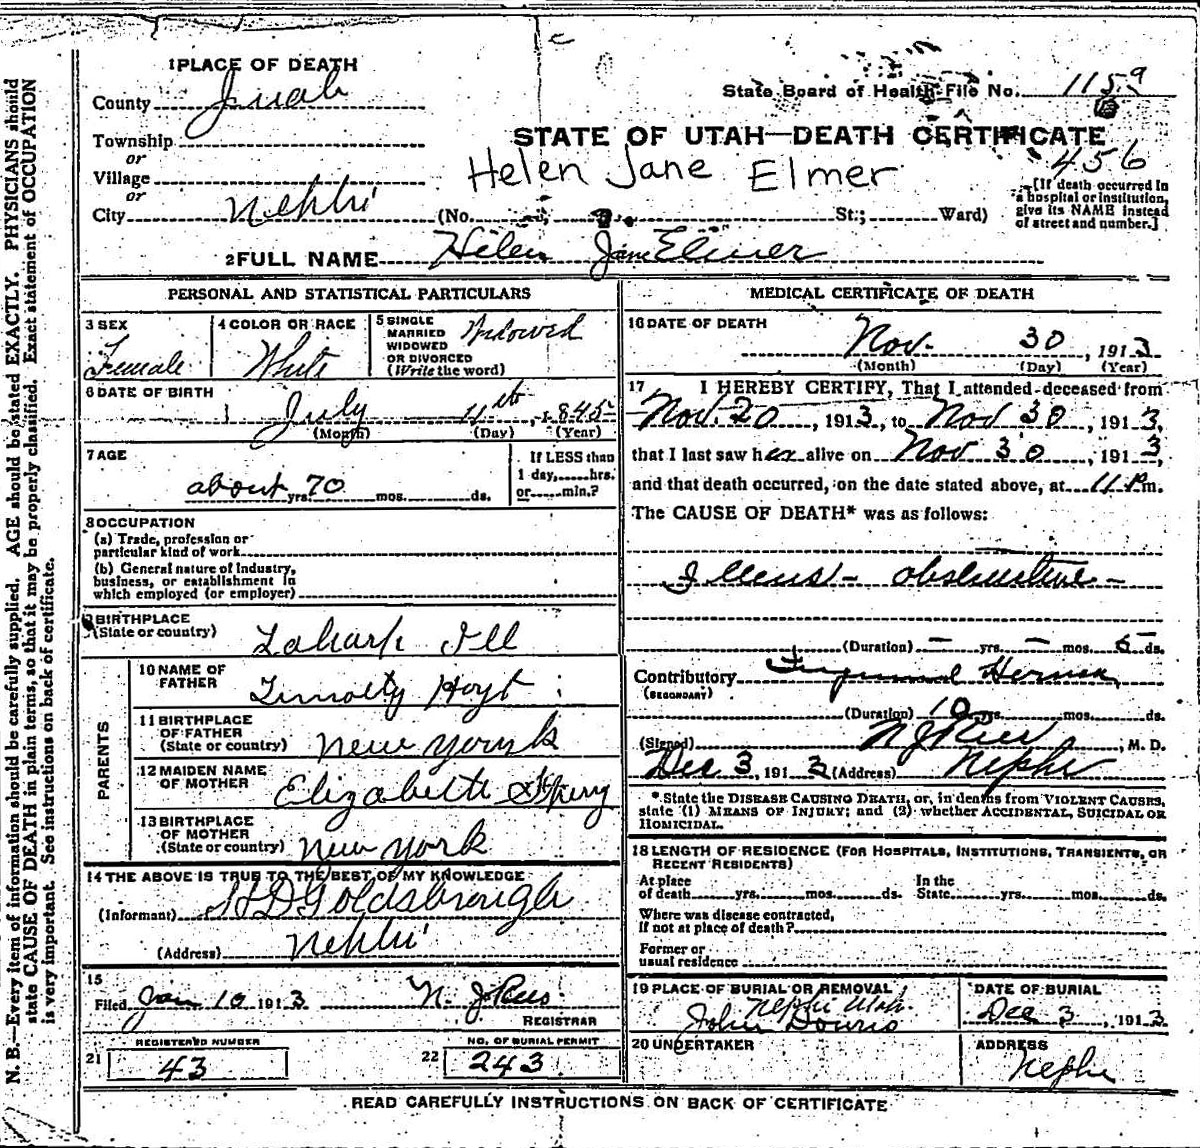 1 PLACE OF DEATH
County Juab
State Board of Health File No. 1159
Township
or
STATE OF UTAH—DEATH CERTIFICATE
456
Village
or
Helen Jane Elmer
City Nephi (No. St.; Ward)
[If death occurred in
a hospital or institution,
give its NAME instead
of street and number.]
2 FULL NAME Helen Jane Elmer
PERSONAL AND STATISTICAL PARTICULARS
3 SEX
Female
4 COLOR OR RACE
White
5 SINGLE
MARRIED
WIDOWED
OR DIVORCED
(Write the word)
Widowed
6 DATE OF BIRTH
July 4th, 1845
(Month) (Day) (Year)
7 AGE
about yrs. 70 mos. ds.
If LESS than
1 day, hrs.
or min.?
8 OCCUPATION
(a) Trade, profession or
particular kind of work
(b) General nature of Industry,
business, or establishment in
which employed (or employer)
9 BIRTHPLACE
(State or country) Laharp Ill
PARENTS
10 NAME OF
FATHER Timothy Hoyt
11 BIRTHPLACE
OF FATHER
(State or country) New York
12 MAIDEN NAME
OF MOTHER Elizabeth
13 BIRTHPLACE
OF MOTHER
(State or country) New York
14 THE ABOVE IS TRUE TO THE BEST OF MY KNOWLEDGE
(Informant) Goldsbrough
(Address) Nephi
15
Filed Jan 10 1913 N. J Rees
REGISTRAR
21 REGISTERED NUMBER
43
22 NO. OF BURIAL PERMIT
243
MEDICAL CERTIFICATE OF DEATH
16 DATE OF DEATH
Nov. 30, 1913
(Month) (Day) (Year)
17 I HEREBY CERTIFY, That I attended deceased from
Nov. 20, 1913, to Nov 30, 1913,
that I last saw her alive on Nov 30, 1913,
and that death occurred, on the date stated above, at 11 P.m.
The CAUSE OF DEATH* was as follows:
Illeus - obstructive -
(Duration) - yrs. - mos. 5 ds.
Contributory
(SECONDARY)
Hernia
(Duration) 10 yrs. mos. ds.
(Signed) N J Rees, M. D.
Dec 3, 1913 (Address) Nephi
*State the DISEASE CAUSING DEATH, or, in deaths from VIOLENT CAUSES,
state (1) MEANS OF INJURY; and (2) whether ACCIDENTAL, SUICIDAL OR
HOMICIDAL.
18 LENGTH OF RESIDENCE (FOR HOSPITALS, INSTITUTIONS, TRANSIENTS, OR
RECENT RESIDENTS)
At place
of death yrs. mos. ds.
In the
State yrs. mos. ds.
Where was disease contracted,
if not at place of death?
Former or
usual residence
19 PLACE OF BURIAL OR REMOVAL
Nephi Utah
DATE OF BURIAL
Dec 3, 1913
John
20 UNDERTAKER
ADDRESS
Nephi
READ CAREFULLY INSTRUCTIONS ON BACK OF CERTIFICATE
N. B.—Every item of information should be carefully supplied. AGE should be stated EXACTLY. PHYSICIANS should
state CAUSE OF DEATH in plain terms, so that it may be properly classified. Exact statement of OCCUPATION
is very important. See instructions on back of certificate.